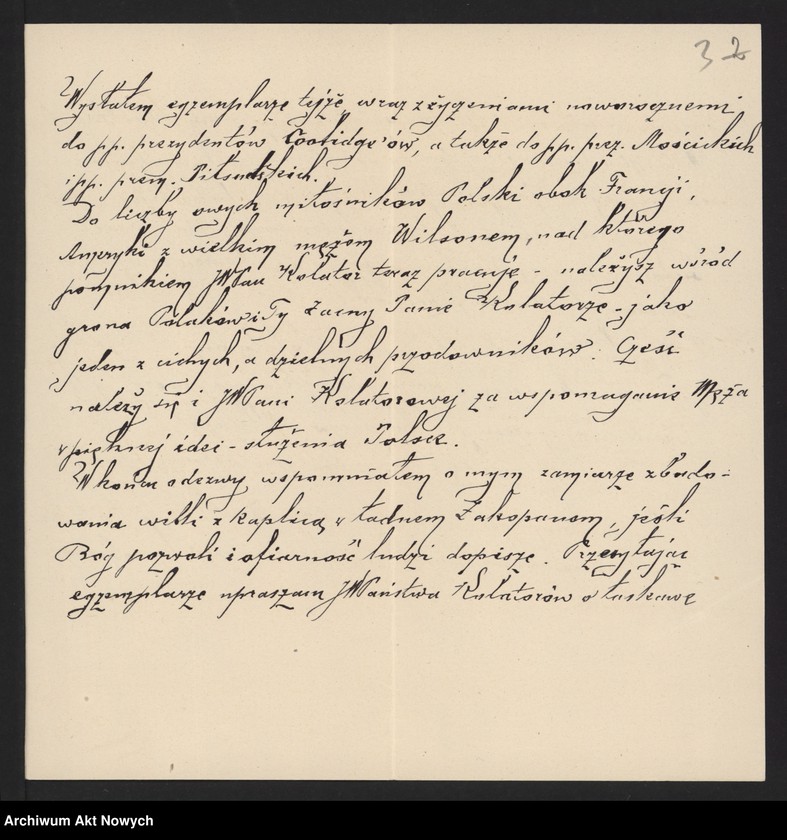 32
Wysłałem egzemplarze tejże wraz z życzeniami noworocznemi
do pp. prezydentów Coolidge'ów, a także do pp. prez. Mościckich
i pp. prem. Piłsudskich.
Do liczby owych miłośników Polski obok Francji,
Ameryki z wielkim mężem Wilsonem, nad którego
pomnikiem JWPan Kolator teraz pracuje - należysz wśród
grona Polaków i Ty Zacny Panie Kolatorze - jako
jeden z cichych, a dzielnych przodowników. Cześć
należy się i JWPani Kolatorowej za wspomaganie Męża
w pięknej idei - służenia Polsce.
W końcu odezwy wspomniałem o mym zamiarze zbudo-
wania willi z kaplicą w ładnem Zakopanem, jeśli
Bóg pozwoli i ofiarność ludzi dopisze. Przesyłając
egzemplarze upraszam JWPaństwa Kolatorów o łaskawe
Archiwum Akt Nowych